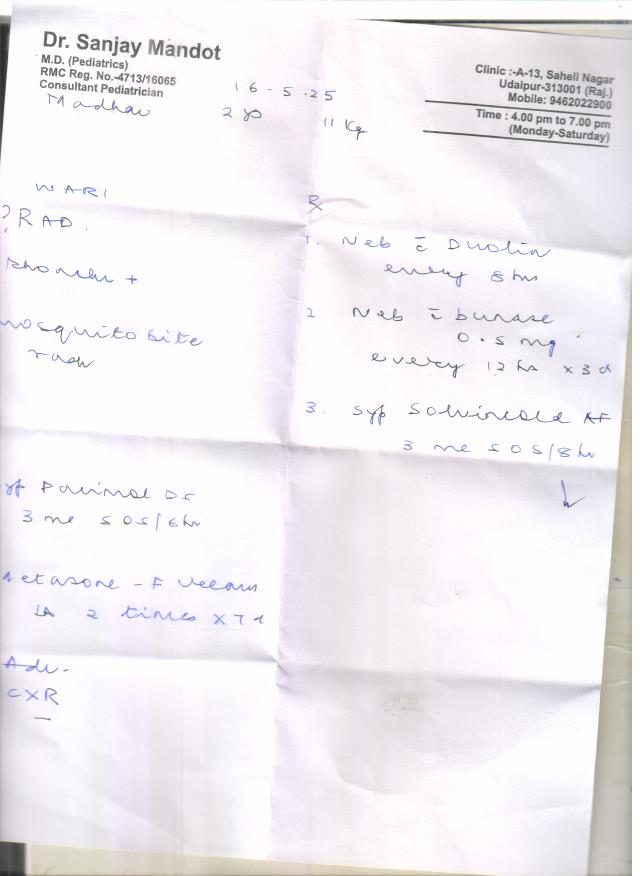 Dr. Sanjay Mandot
M.D. (Pediatrics)
RMC Reg. No.-4713/16065
Consultant Pediatrician
Clinic :-A-13, Saheli Nagar
Udaipur-313001 (Raj.)
Mobile: 9462022900
Time : 4.00 pm to 7.00 pm
(Monday-Saturday)
16-5.25
Madhav 2 yo 11 Kg
WARI
? RAD.
Rhonchi +
mosquito bite
rash
Rx
1. Neb c̄ Duolin
every 8 hrs
2 Neb c̄ budase
0.5 mg
every 12 hr x 3 d
3. Syp Solvincold AF
3 ml SOS/8 hr
DS
3 ml SOS/6 hr
etasone - F cream
LA 2 times x 7 d
Adv.
CXR